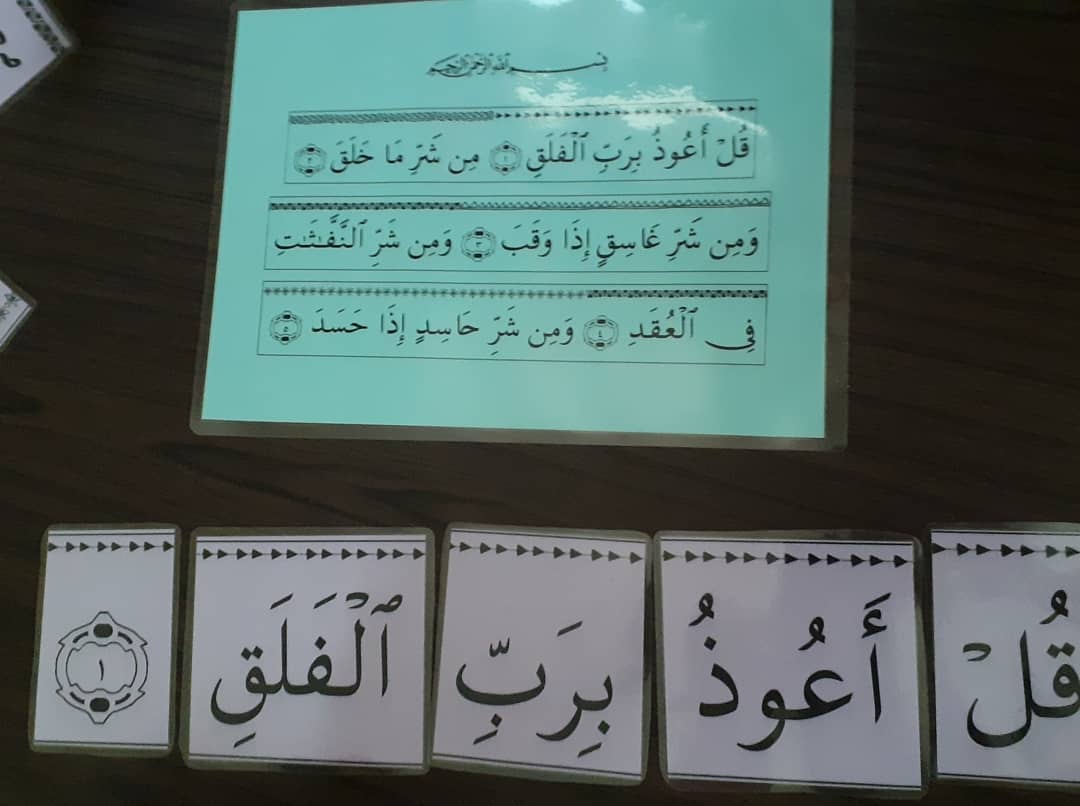 بِسْمِ اللَّهِ الرَّحْمَٰنِ الرَّحِيمِ
قُلْ أَعُوذُ بِرَبِّ ٱلْفَلَقِ ١ مِن شَرِّ مَا خَلَقَ ٢
وَمِن شَرِّ غَاسِقٍ إِذَا وَقَبَ ٣ وَمِن شَرِّ ٱلنَّفَّـٰثَـٰتِ
فِى ٱلْعُقَدِ ٤ وَمِن شَرِّ حَاسِدٍ إِذَا حَسَدَ ٥
قُلْ أَعُوذُ بِرَبِّ ٱلْفَلَقِ ١